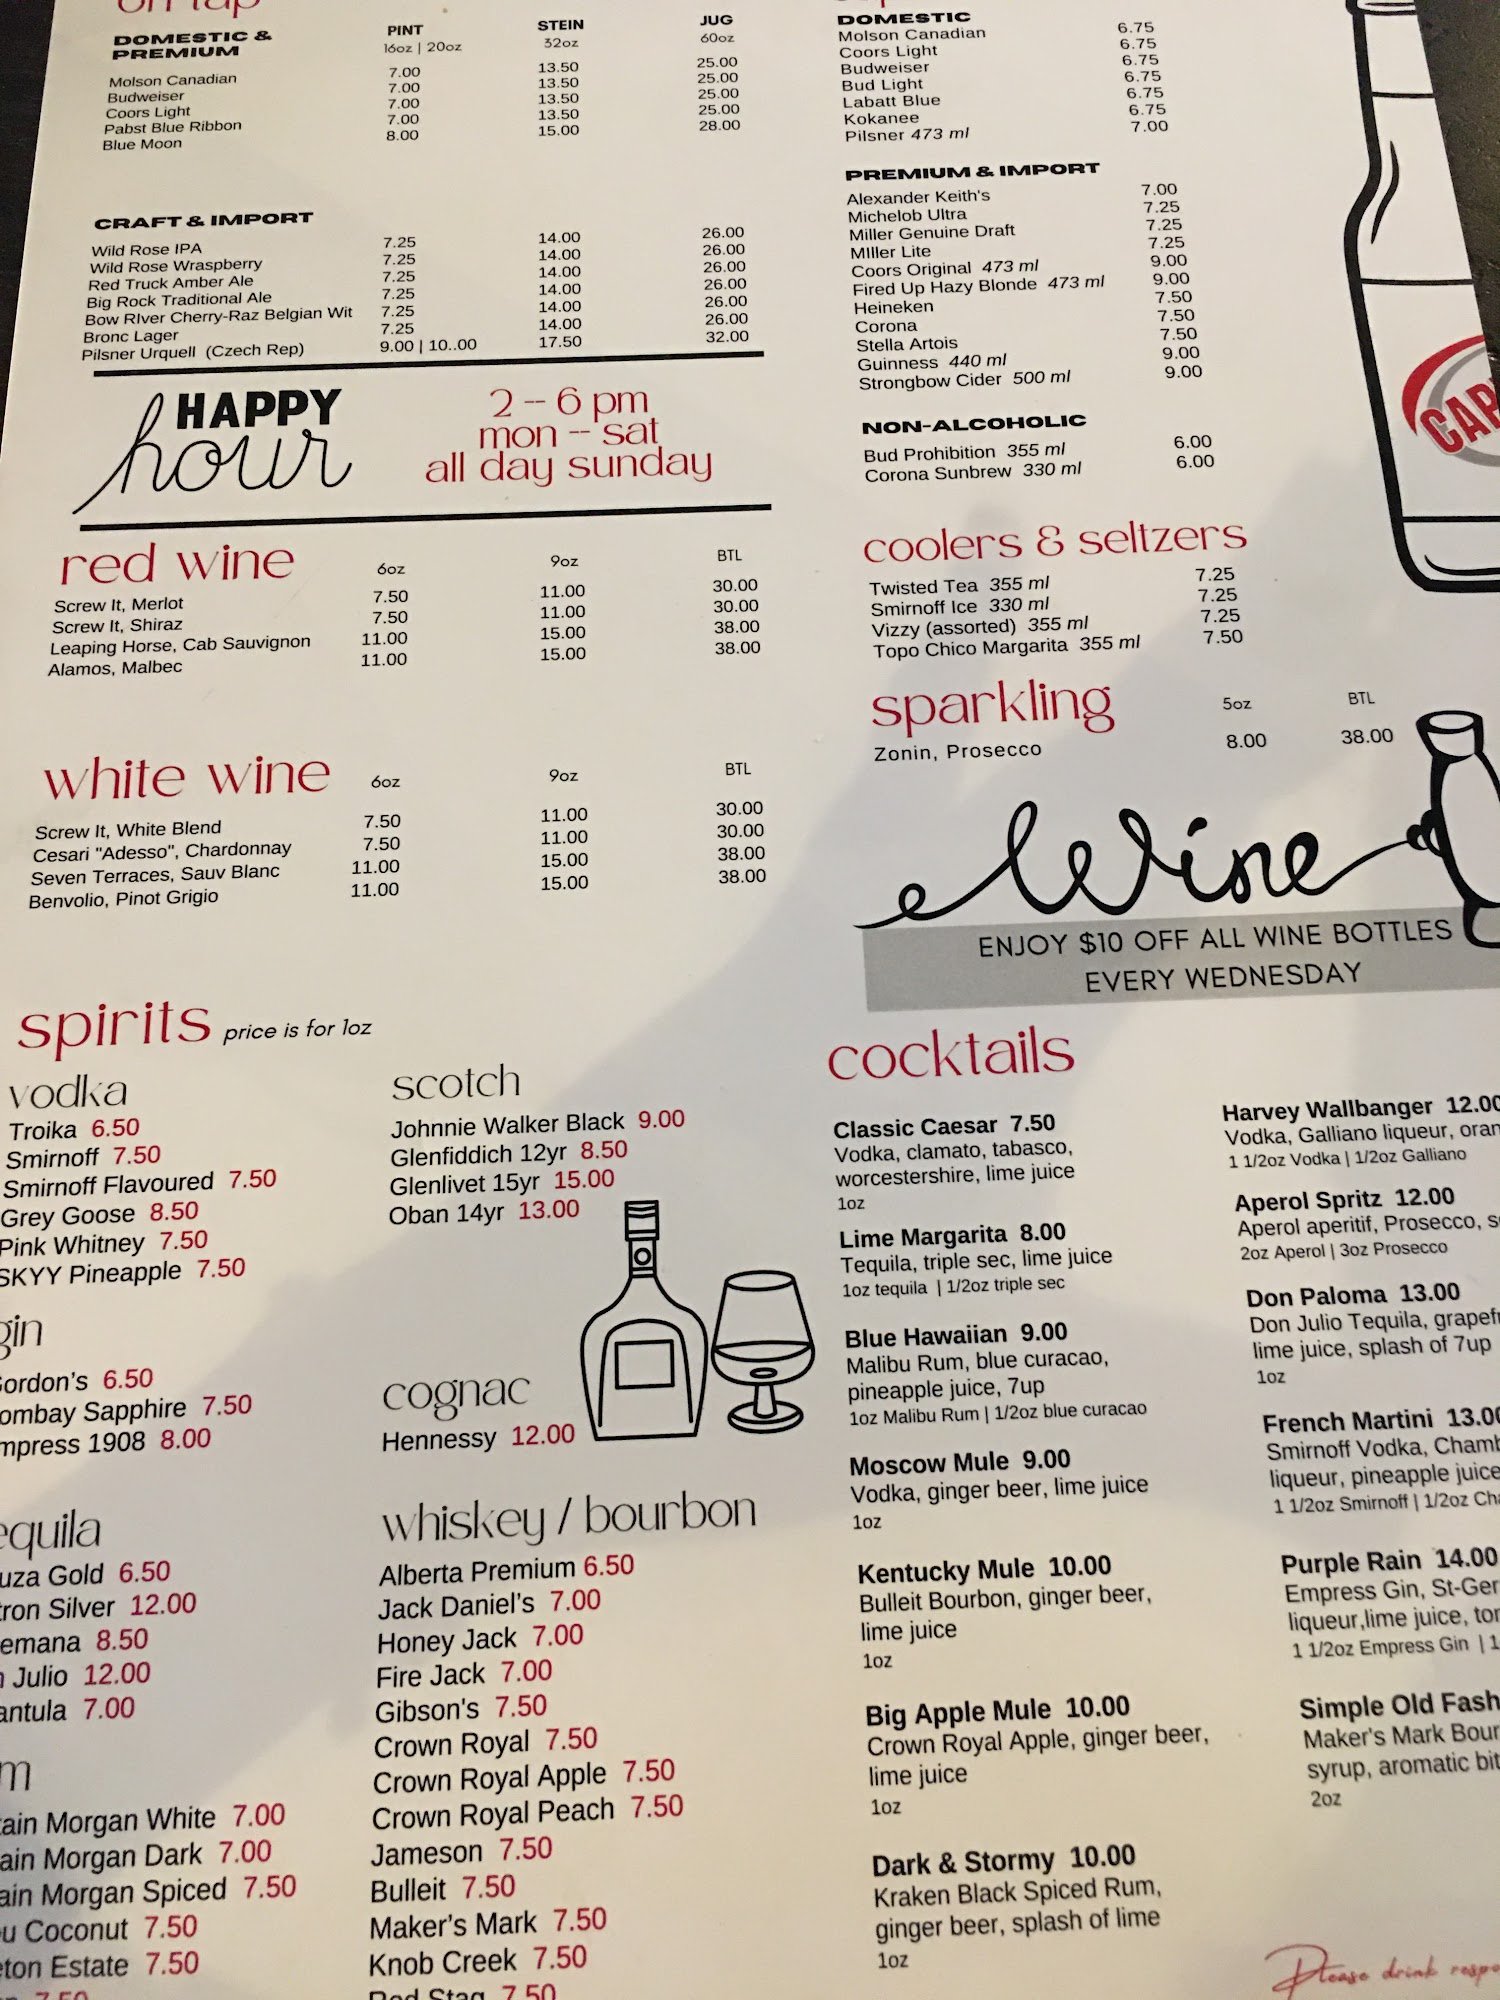 on tap
DOMESTIC & PREMIUM PINT 16oz | 20oz STEIN 32oz JUG 60oz
Molson Canadian 7.00 13.50 25.00
Budweiser 7.00 13.50 25.00
Coors Light 7.00 13.50 25.00
Pabst Blue Ribbon 7.00 13.50 25.00
Blue Moon 8.00 15.00 28.00
CRAFT & IMPORT
Wild Rose IPA 7.25 14.00 26.00
Wild Rose Wraspberry 7.25 14.00 26.00
Red Truck Amber Ale 7.25 14.00 26.00
Big Rock Traditional Ale 7.25 14.00 26.00
Bow RIver Cherry-Raz Belgian Wit 7.25 14.00 26.00
Bronc Lager 7.25 14.00 26.00
Pilsner Urquell (Czech Rep) 9.00 | 10..00 17.50 32.00
HAPPY
hour
2 - 6 pm
mon - sat
all day sunday
red wine 6oz 9oz BTL
Screw It, Merlot 7.50 11.00 30.00
Screw It, Shiraz 7.50 11.00 30.00
Leaping Horse, Cab Sauvignon 11.00 15.00 38.00
Alamos, Malbec 11.00 15.00 38.00
white wine 6oz 9oz BTL
Screw It, White Blend 7.50 11.00 30.00
Cesari "Adesso", Chardonnay 7.50 11.00 30.00
Seven Terraces, Sauv Blanc 11.00 15.00 38.00
Benvolio, Pinot Grigio 11.00 15.00 38.00
DOMESTIC
Molson Canadian 6.75
Coors Light 6.75
Budweiser 6.75
Bud Light 6.75
Labatt Blue 6.75
Kokanee 6.75
Pilsner 473 ml 7.00
PREMIUM & IMPORT
Alexander Keith's 7.00
Michelob Ultra 7.25
Miller Genuine Draft 7.25
MIller Lite 7.25
Coors Original 473 ml 9.00
Fired Up Hazy Blonde 473 ml 9.00
Heineken 7.50
Corona 7.50
Stella Artois 7.50
Guinness 440 ml 9.00
Strongbow Cider 500 ml 9.00
NON-ALCOHOLIC
Bud Prohibition 355 ml 6.00
Corona Sunbrew 330 ml 6.00
CAP
coolers & seltzers
Twisted Tea 355 ml 7.25
Smirnoff Ice 330 ml 7.25
Vizzy (assorted) 355 ml 7.25
Topo Chico Margarita 355 ml 7.50
sparkling 5oz BTL
Zonin, Prosecco 8.00 38.00
Wine
ENJOY $10 OFF ALL WINE BOTTLES
EVERY WEDNESDAY
spirits price is for 1oz
vodka
Troika 6.50
Smirnoff 7.50
Smirnoff Flavoured 7.50
Grey Goose 8.50
Pink Whitney 7.50
SKYY Pineapple 7.50
gin
Gordon's 6.50
ombay Sapphire 7.50
mpress 1908 8.00
equila
uza Gold 6.50
tron Silver 12.00
emana 8.50
Julio 12.00
antula 7.00
m
tain Morgan White 7.00
ain Morgan Dark 7.00
ain Morgan Spiced 7.50
u Coconut 7.50
eton Estate 7.50
7.50
scotch
Johnnie Walker Black 9.00
Glenfiddich 12yr 8.50
Glenlivet 15yr 15.00
Oban 14yr 13.00
cognac
Hennessy 12.00
whiskey / bourbon
Alberta Premium 6.50
Jack Daniel's 7.00
Honey Jack 7.00
Fire Jack 7.00
Gibson's 7.50
Crown Royal 7.50
Crown Royal Apple 7.50
Crown Royal Peach 7.50
Jameson 7.50
Bulleit 7.50
Maker's Mark 7.50
Knob Creek 7.50
Red Stag 7.50
cocktails
Classic Caesar 7.50
Vodka, clamato, tabasco,
worcestershire, lime juice
1oz
Lime Margarita 8.00
Tequila, triple sec, lime juice
1oz tequila | 1/2oz triple sec
Blue Hawaiian 9.00
Malibu Rum, blue curacao,
pineapple juice, 7up
1oz Malibu Rum | 1/2oz blue curacao
Moscow Mule 9.00
Vodka, ginger beer, lime juice
1oz
Kentucky Mule 10.00
Bulleit Bourbon, ginger beer,
lime juice
1oz
Big Apple Mule 10.00
Crown Royal Apple, ginger beer,
lime juice
1oz
Dark & Stormy 10.00
Kraken Black Spiced Rum,
ginger beer, splash of lime
1oz
Harvey Wallbanger 12.00
Vodka, Galliano liqueur, oran
1 1/2oz Vodka | 1/2oz Galliano
Aperol Spritz 12.00
Aperol aperitif, Prosecco, s
2oz Aperol | 3oz Prosecco
Don Paloma 13.00
Don Julio Tequila, grapefr
lime juice, splash of 7up
1oz
French Martini 13.00
Smirnoff Vodka, Chamb
liqueur, pineapple juice
1 1/2oz Smirnoff | 1/2oz Cha
Purple Rain 14.00
Empress Gin, St-Ger
liqueur,lime juice, ton
1 1/2oz Empress Gin | 1
Simple Old Fash
Maker's Mark Bour
syrup, aromatic bit
2oz
Please drink respo